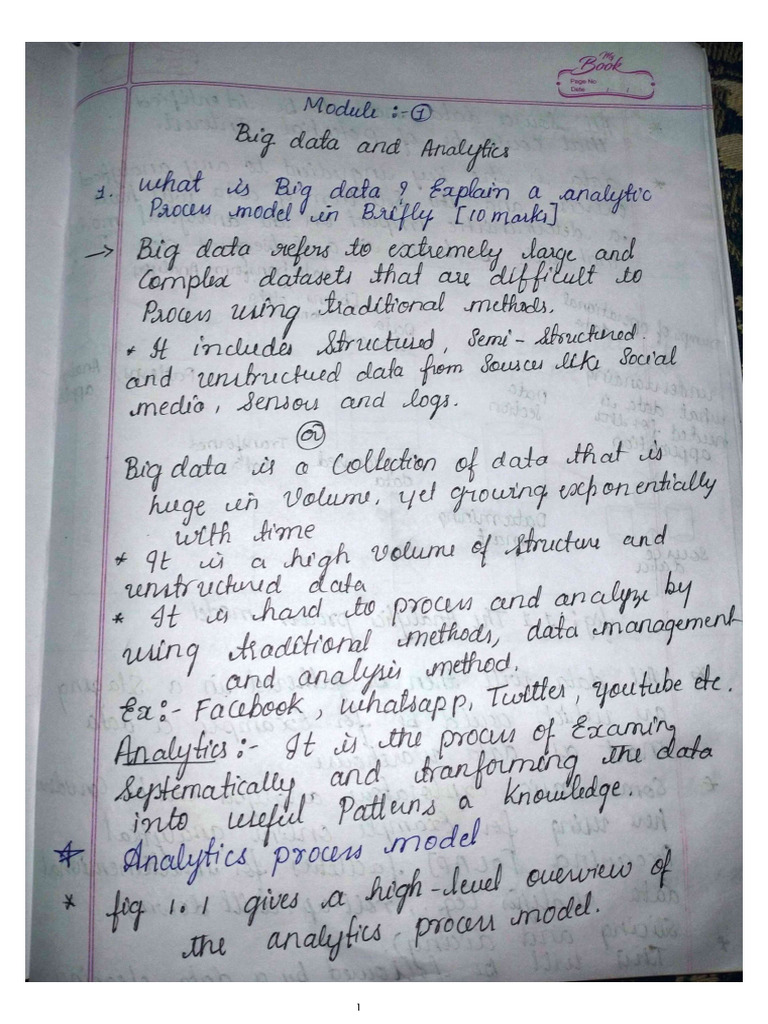 My
Book
Page No
Date / /
Module :- ①
Big data and Analytics
1. what is Big data ? Explain a analytic
Process model in Brifly [10 marks]
→ Big data refers to extremely large and
Complex datasets that are difficult to
Process using traditional methods.
* It includes Structured, Semi-Structured.
and unstructued data from Sources like Social
media, Sensors and logs.
or
Big data is a Collection of data that is
huge in Volume, yet growing exponentially
with time
* It is a high volume of structure and
unstructured data
* It is hard to process and analyze by
using traditional methods, data management
and analysis method.
Ex:- Facebook, whatsapp, Twitter, youtube etc.
Analytics :- It is the process of Examing
Septematically and tranforming the data
into useful Patterns a knowledge.
* Analytics process model
* fig 1.1 gives a high-level overview of
the analytics process model.
1